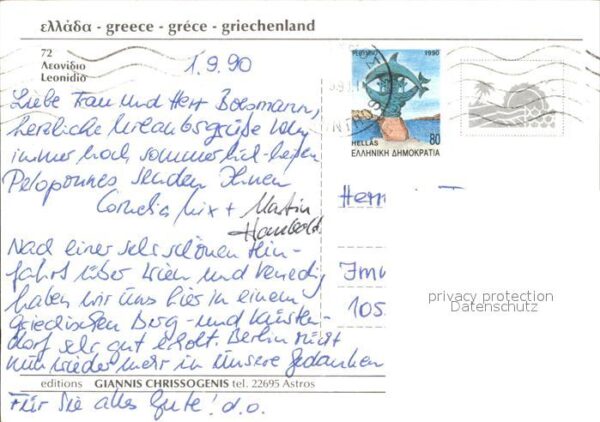 ελλάδα - greece - gréce - griechenland
72
Λεονίδιο
Leonidio
1.9.90
Liebe Frau und Herr Bossmann,
herzliche Urlaubsgrüße vom
immer noch sommerlich-heißen
Peloponnes senden Ihnen
Cornelia + Martin
Nach einer sehr schönen Hin-
fahrt über Wien und Venedig
haben wir uns hier in einem
griechischen Berg- und Küsten-
dorf sehr gut erholt. Berlin rückt
nun wieder mehr in unsere Gedanken
editions GIANNIS CHRISSOGENIS tel. 22695 Astros
Für Sie alles Gute! d.o.
1990
HELLAS 80
ΕΛΛΗΝΙΚΗ ΔΗΜΟΚΡΑΤΙΑ
105
privacy protection
Datenschutz